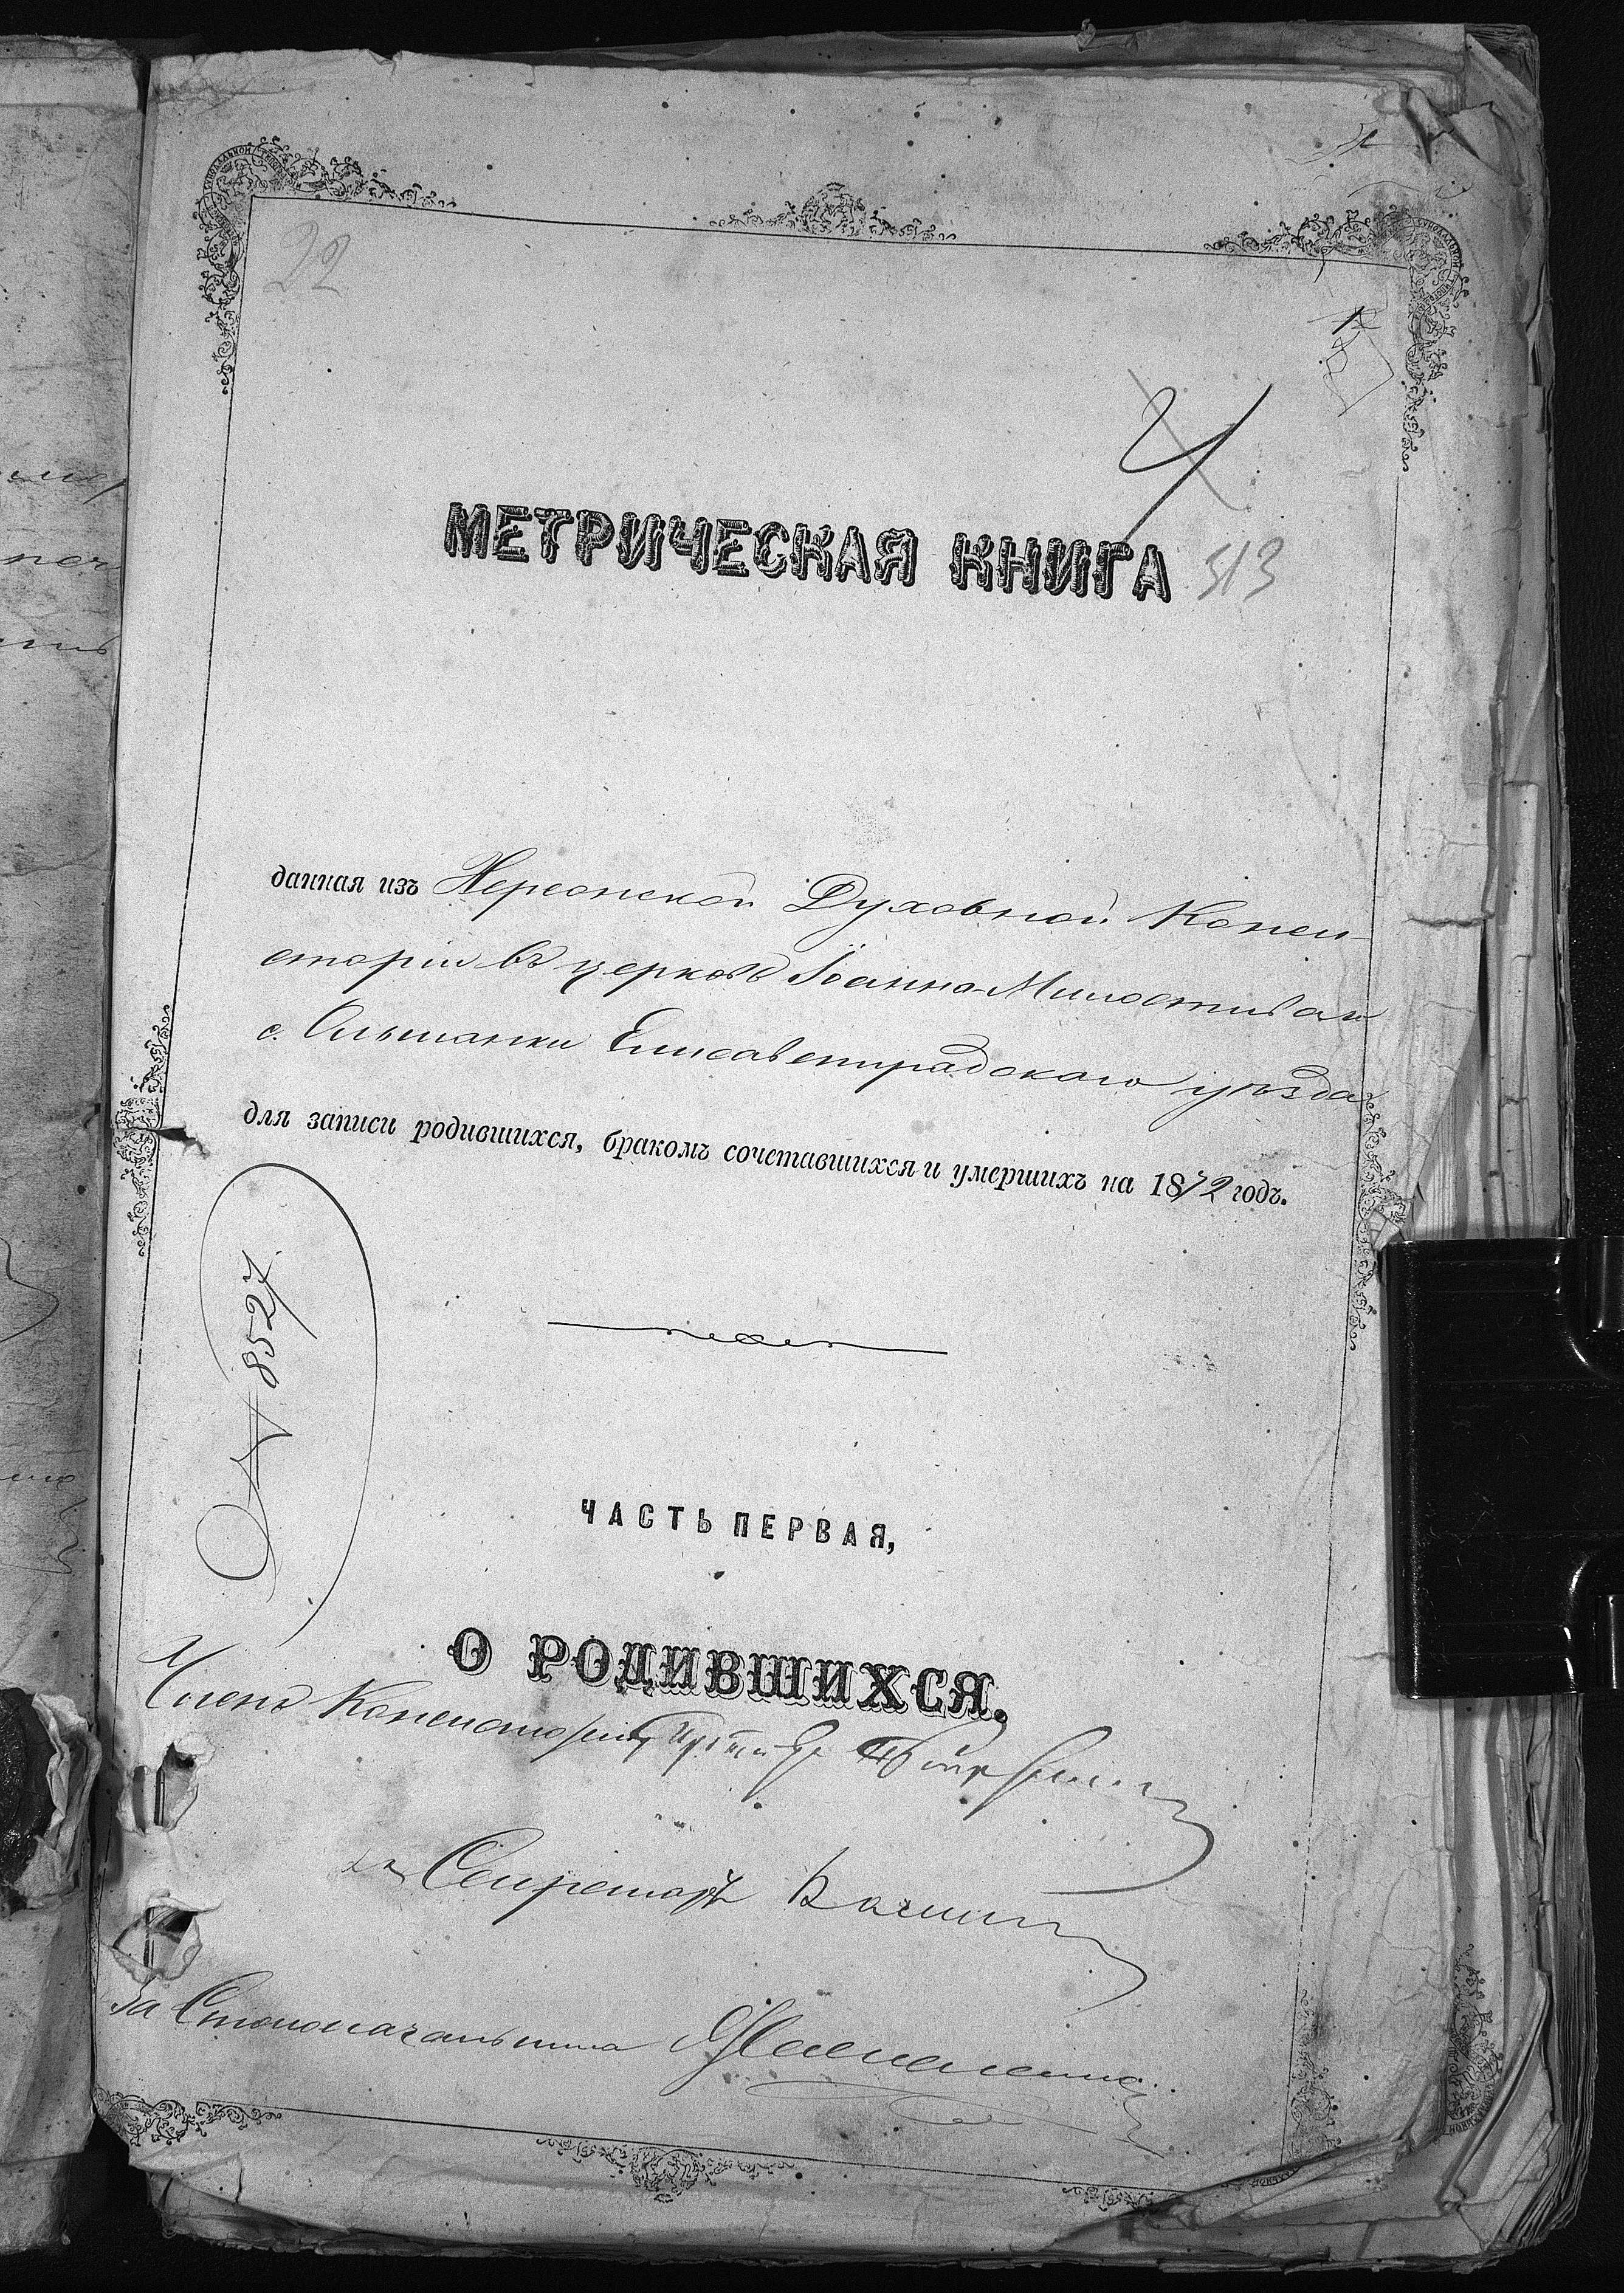 22
4
МЕТРИЧЕСКАЯ КНИГА 513
данная изъ Херсонской Духовной Конси-
сторіи въ церковь Іоанно-Милостивая
с. Ольшанки Елисаветградскаго уѣзда
для записи родившихся, бракомъ сочетавшихся и умершихъ на 1872 годъ.
№ 8527
ЧАСТЬ ПЕРВАЯ,
О РОДИВШИХСЯ.
Членъ Консисторіи
Секретарь
За Столоначальника